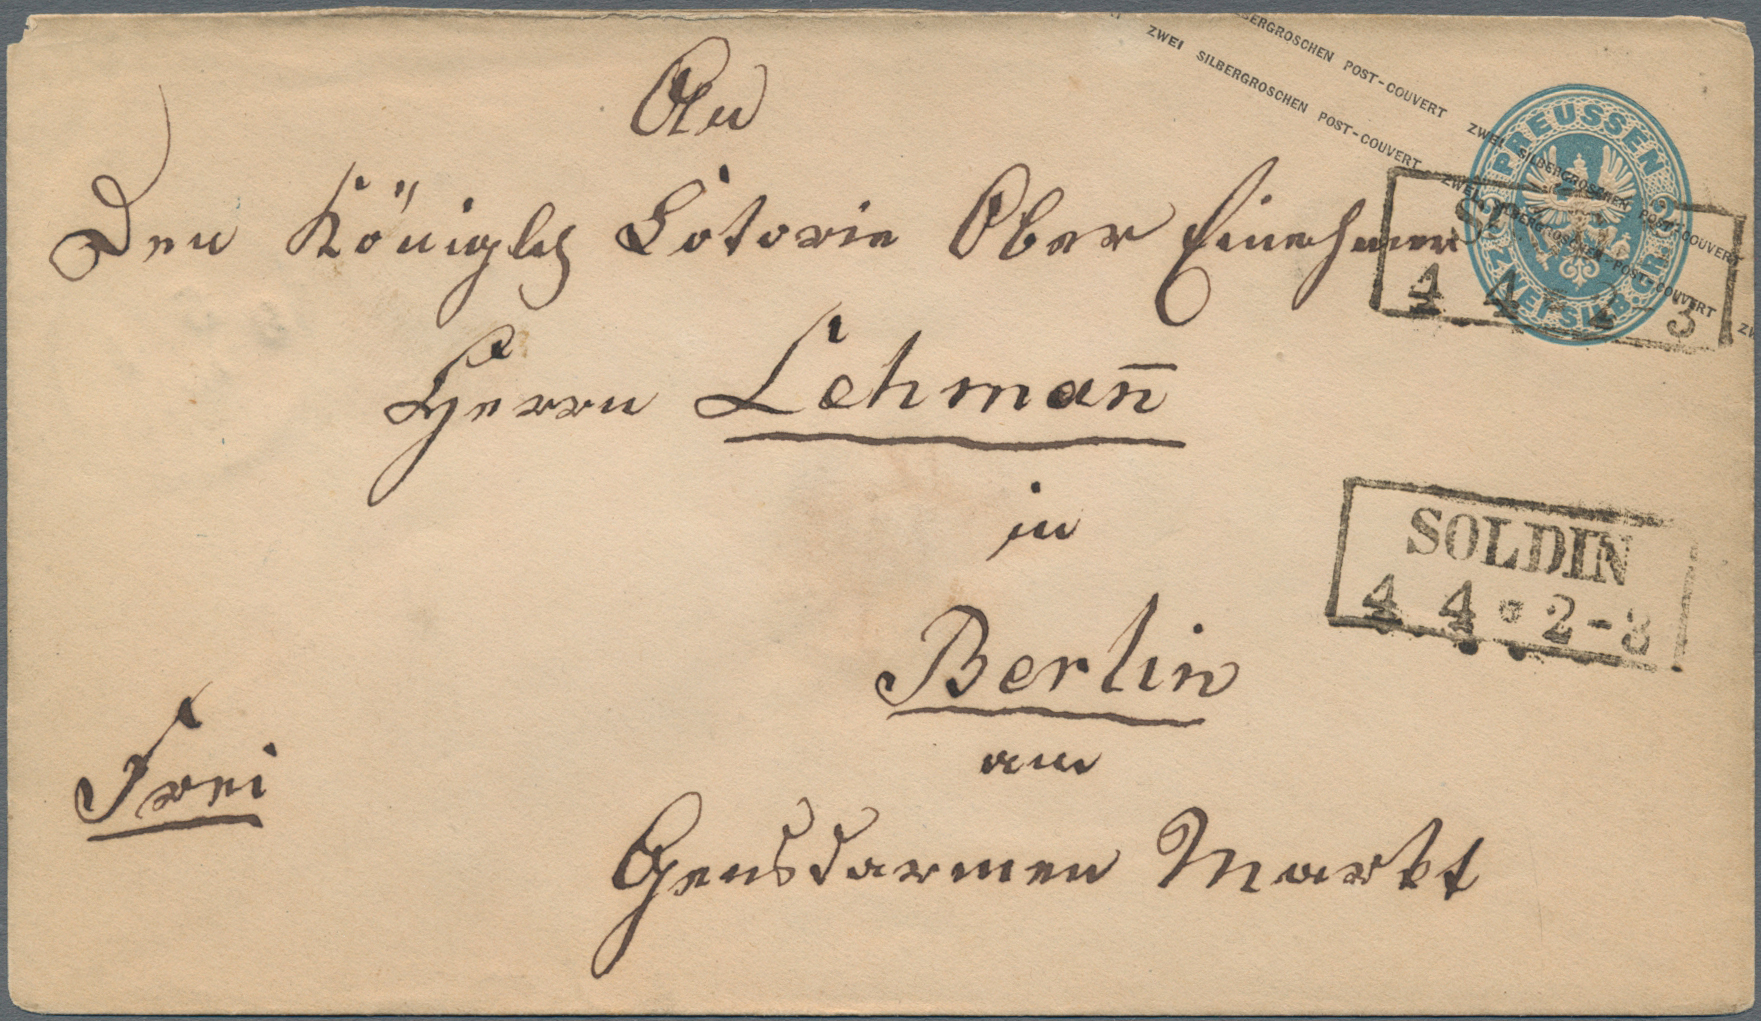 SILBERGROSCHEN POST-COUVERT ZWEI SILBERGROSCHEN POST-COUVERT
ZWEI SILBERGROSCHEN POST-COUVERT ZWEI SILBERGROSCHEN POST-COUVERT
PREUSSEN
ZWEI SILB. GR.
4 4 * 2-3
An
Den Königlch Lotorie Ober Einehmer
Herrn Lehman̄
in
Berlin
am
Gensdarmen Markt
Frei
SOLDIN
4 4 * 2-3